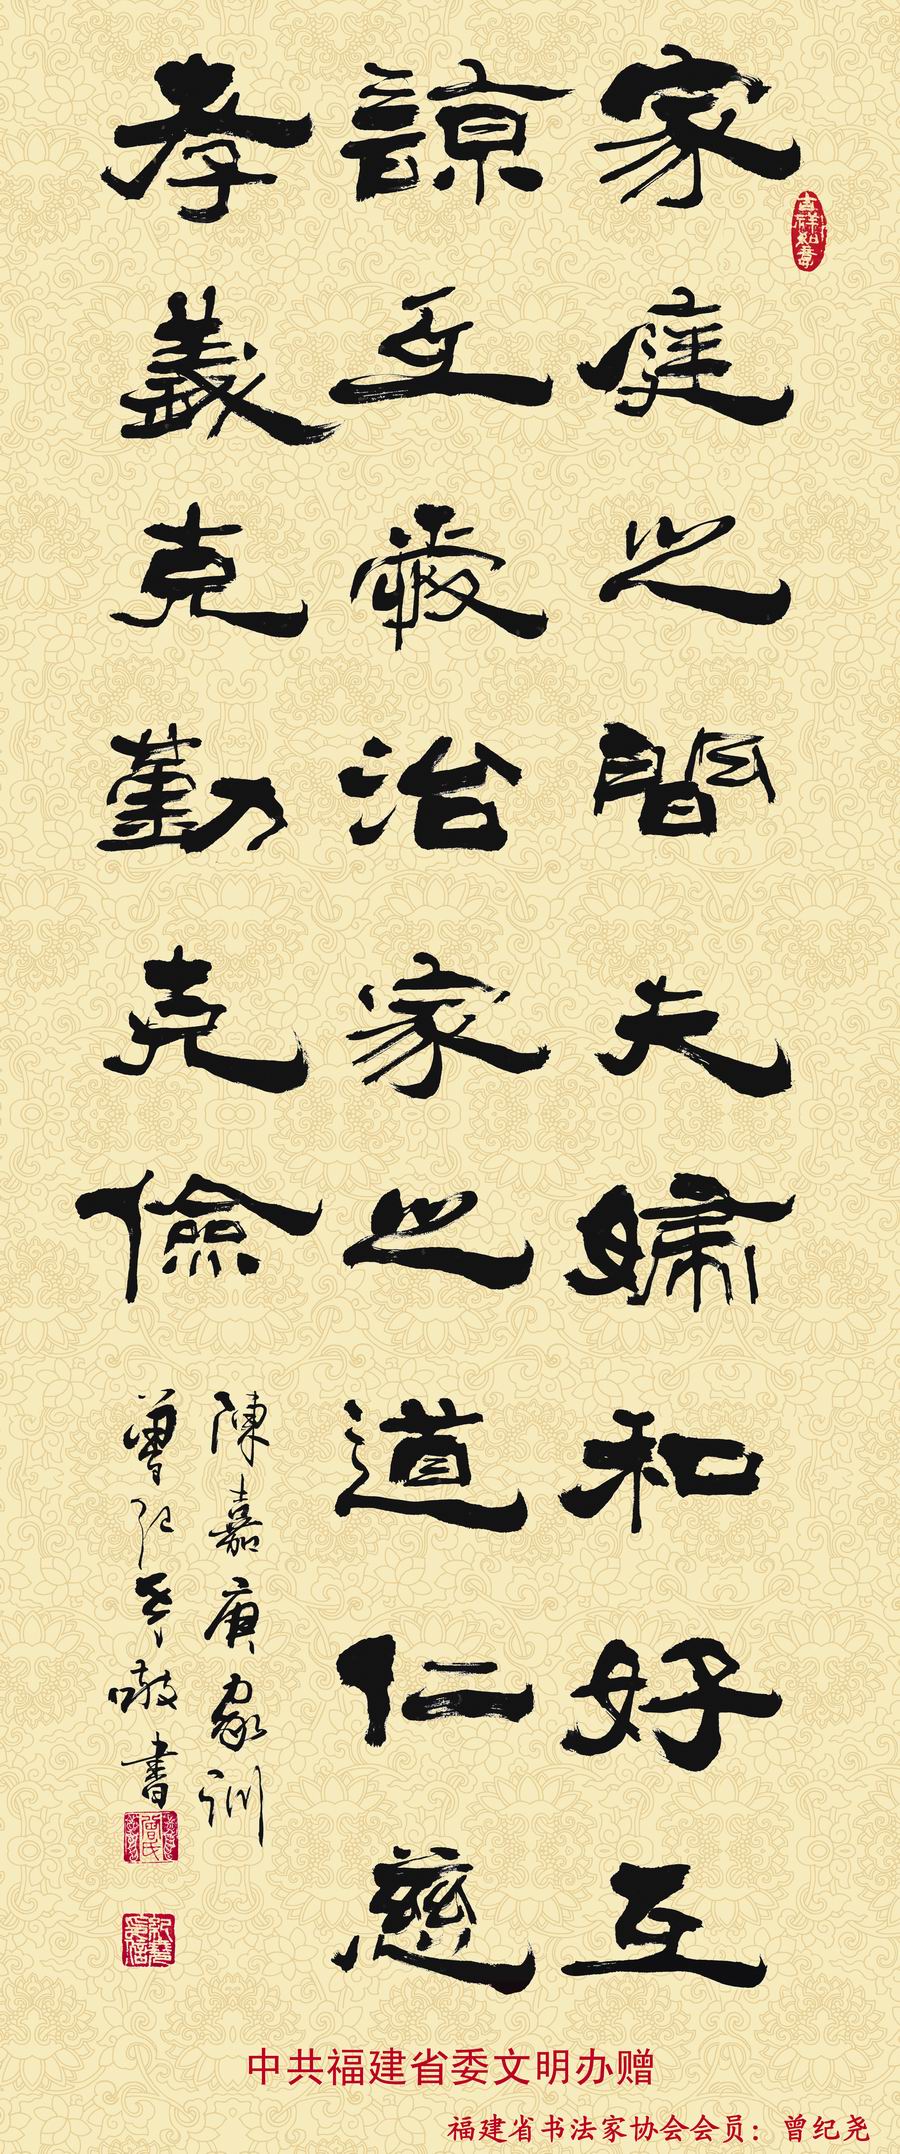 家庭之間夫婦和好互
諒互愛治家之道仁慈
孝義克勤克儉
陳嘉庚家訓
曾紀堯敬書
吉祥如意
中共福建省委文明办赠
福建省书法家协会会员：曾纪尧